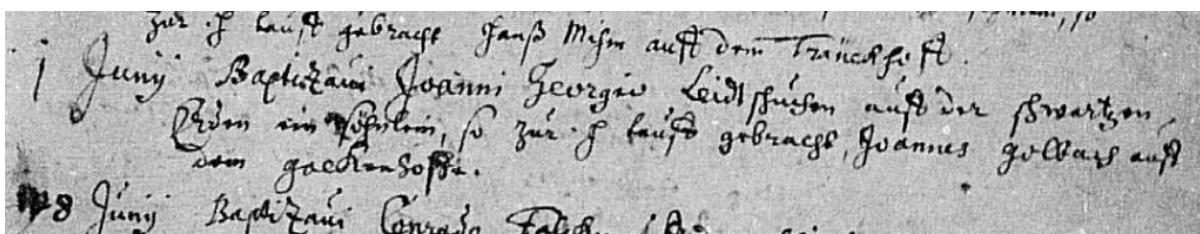 zur h tauft gebracht Hanß Mihm auff dem Tränckhoff.
1 Junij Baptizaui Joanni Georgio Leidtshuchen auff der shwartzen
Erden ein Söhnlein, so zur h tauft gebracht, Joannes golbach auff
dem gackenhoffe.
8 Junij Baptizaui Conrado